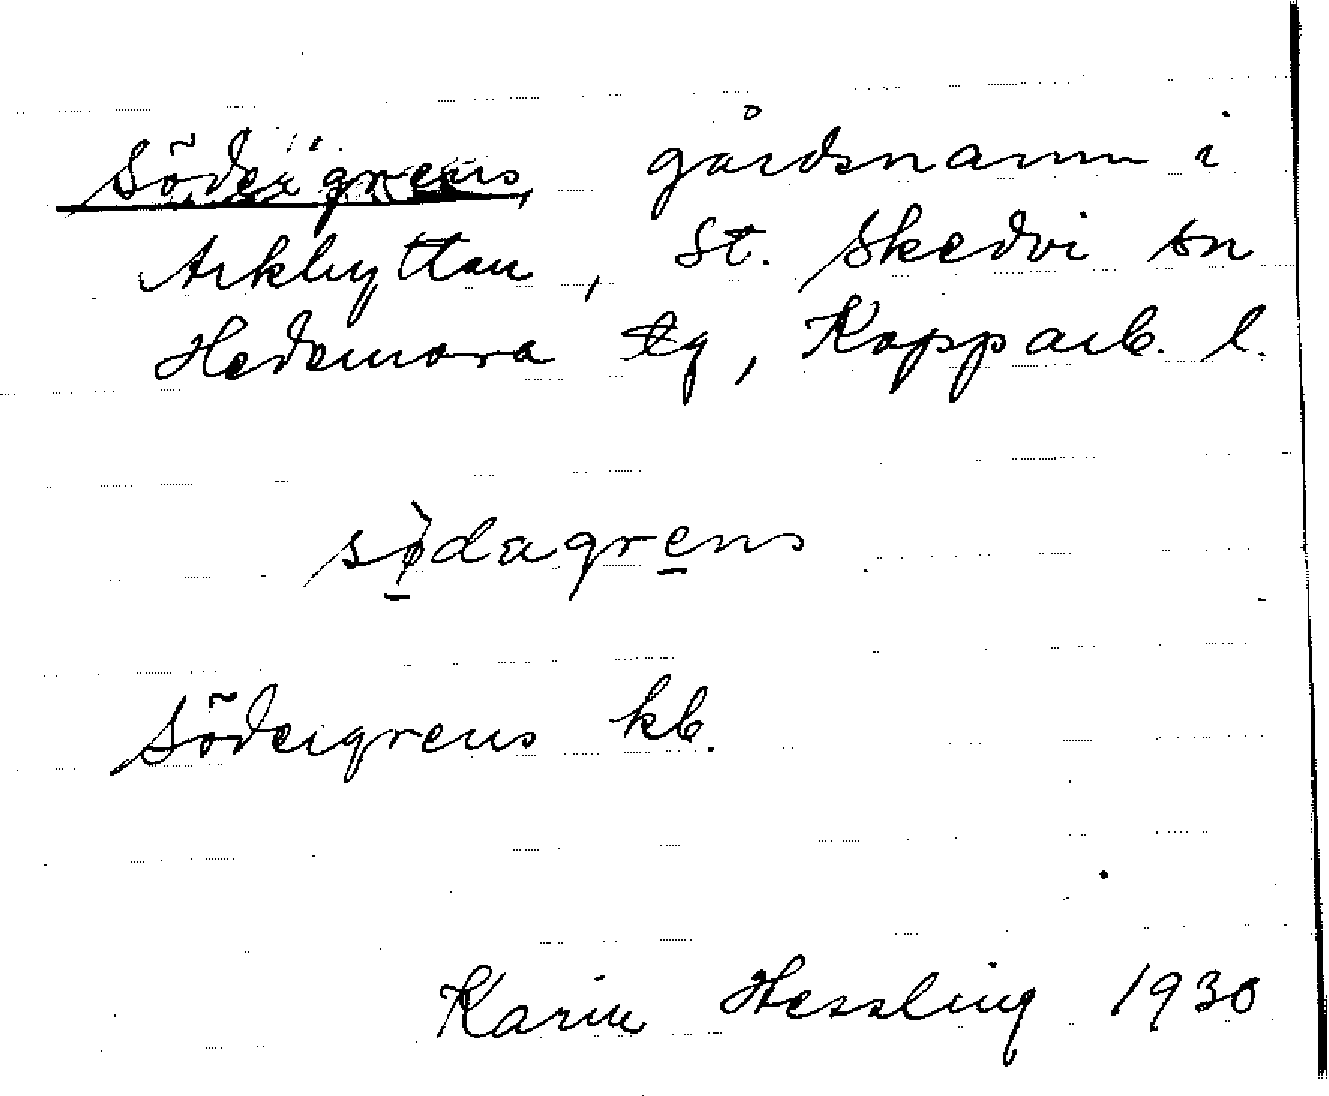 Södergrens, gårdsnamn i
Arkhyttan, St. Skedvi sn
Hedemora tg, Kopparb. l.
sø̀dagrens
Södergrens kb.
Karin Hessling 1930